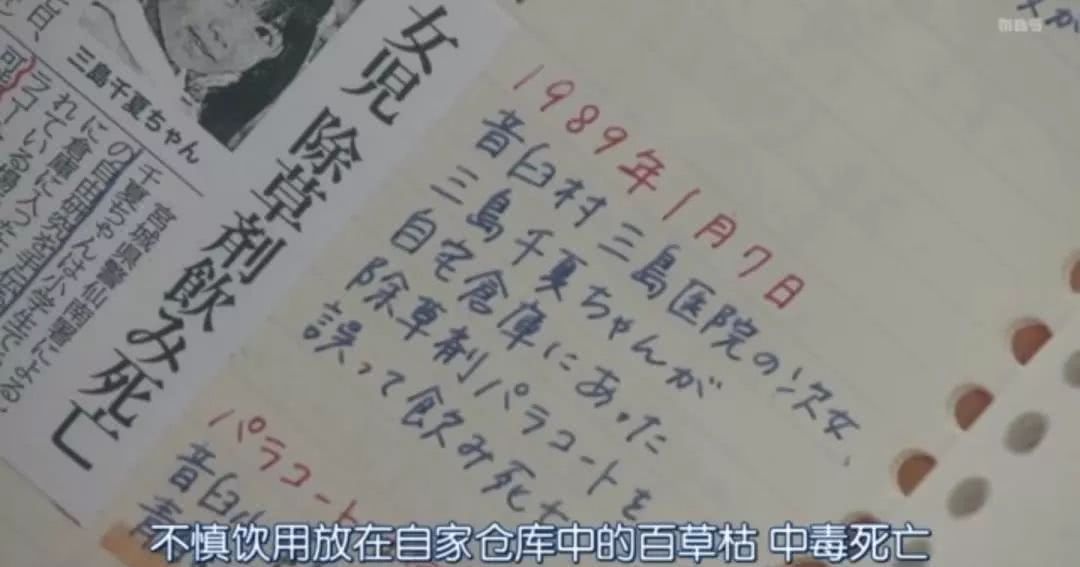 三島千夏ちゃん
女児 除草剤飲み死亡
宮城県警仙南署による
千夏ちゃんは小学生で
の自由研究
に倉庫に入った
れている
可能
1989年1月7日
音臼村三島医院の次女、
三島千夏ちゃんが
自宅倉庫にあった
除草剤パラコートを
誤って飲み死亡
パラコート
音臼
不慎饮用放在自家仓库中的百草枯 中毒死亡